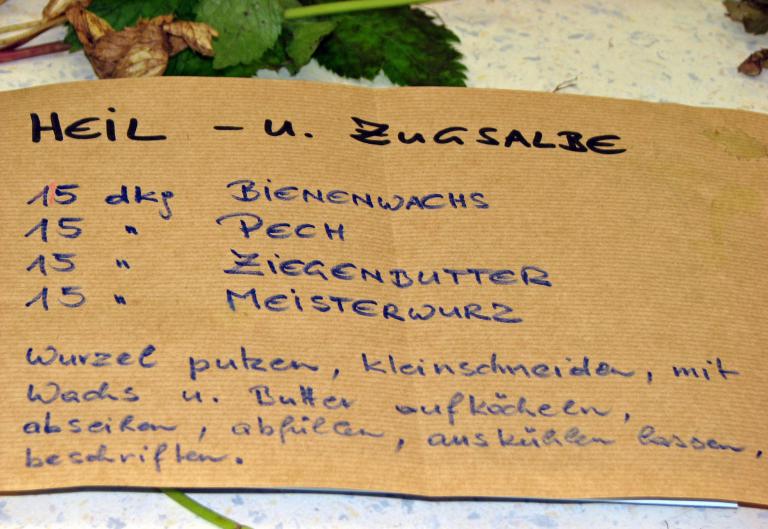 HEIL - u. ZUGSALBE
15 dkg BIENENWACHS
15 " PECH
15 " ZIEGENBUTTER
15 " MEISTERWURZ
Wurzel putzen, kleinschneiden, mit
Wachs u. Butter aufköcheln,
abseihen, abfüllen, auskühlen lassen,
beschriften.